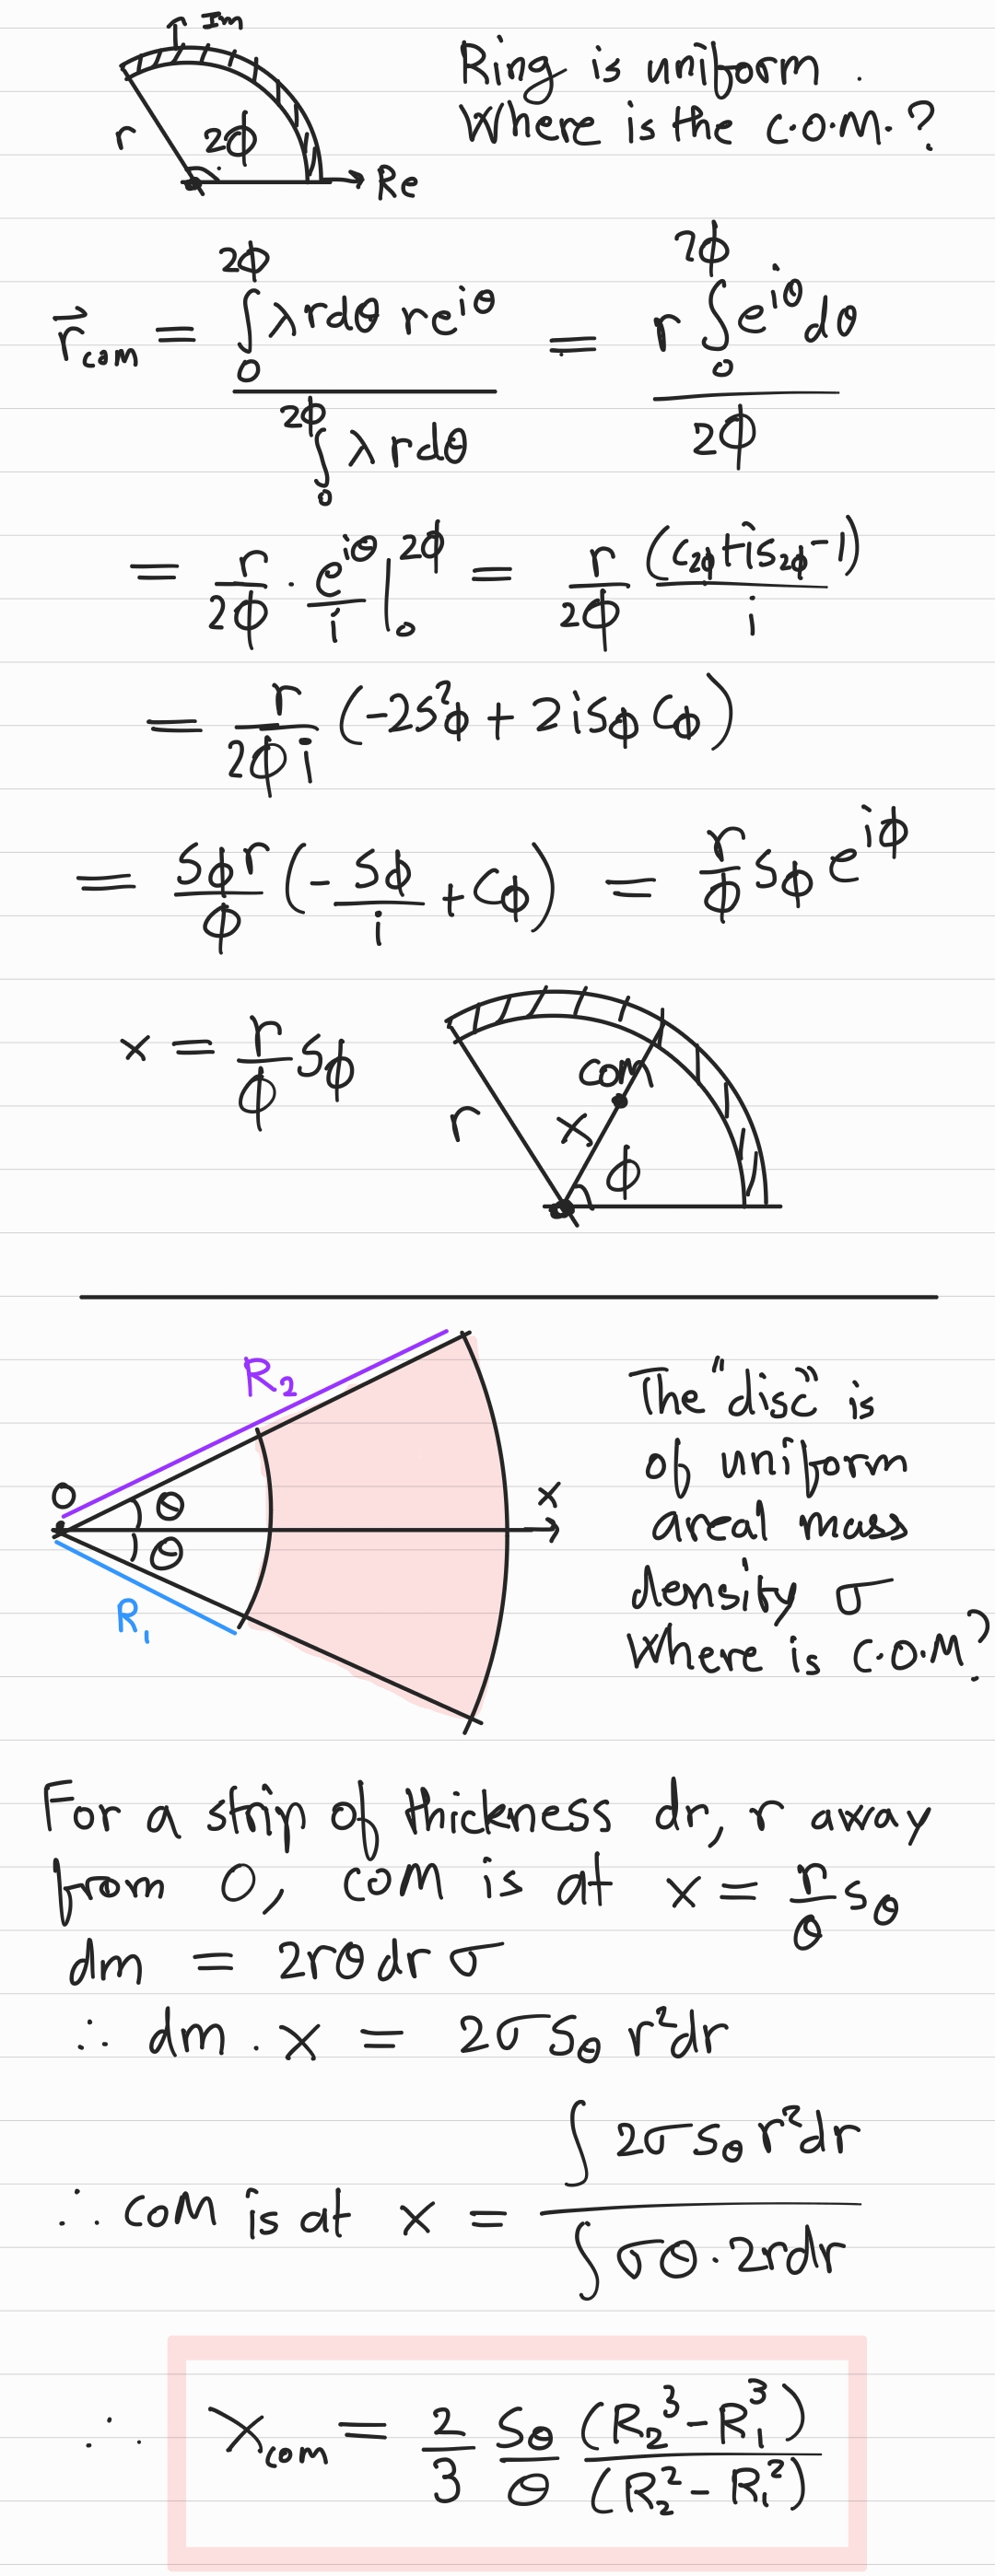 Im
Ring is uniform.
Where is the c.o.m.?
r 2ϕ
Re
r⃗_com = ∫_0^{2ϕ} λ r dθ r e^{iθ} / ∫_0^{2ϕ} λ r dθ = r ∫_0^{2ϕ} e^{iθ} dθ / 2ϕ
= r/2ϕ · e^{iθ}/i |_0^{2ϕ} = r/2ϕ (c_{2ϕ} + i s_{2ϕ} - 1)/i
= r/2ϕi (-2s²_ϕ + 2 i s_ϕ c_ϕ)
= s_ϕ r/ϕ (- s_ϕ/i + c_ϕ) = r/ϕ s_ϕ e^{iϕ}
x = r/ϕ s_ϕ
com
r x ϕ
R₂
The "disc" is
of uniform
areal mass
density σ
Where is c.o.M?
O θ x
θ
R₁
For a strip of thickness dr, r away
from O, COM is at x = r/θ s_θ
dm = 2rθ dr σ
∴ dm . x = 2σ s_θ r² dr
∴ COM is at x = ∫ 2σ s_θ r² dr / ∫ σθ · 2r dr
∴ x_com = 2/3 s_θ/θ (R₂³ - R₁³)/(R₂² - R₁²)